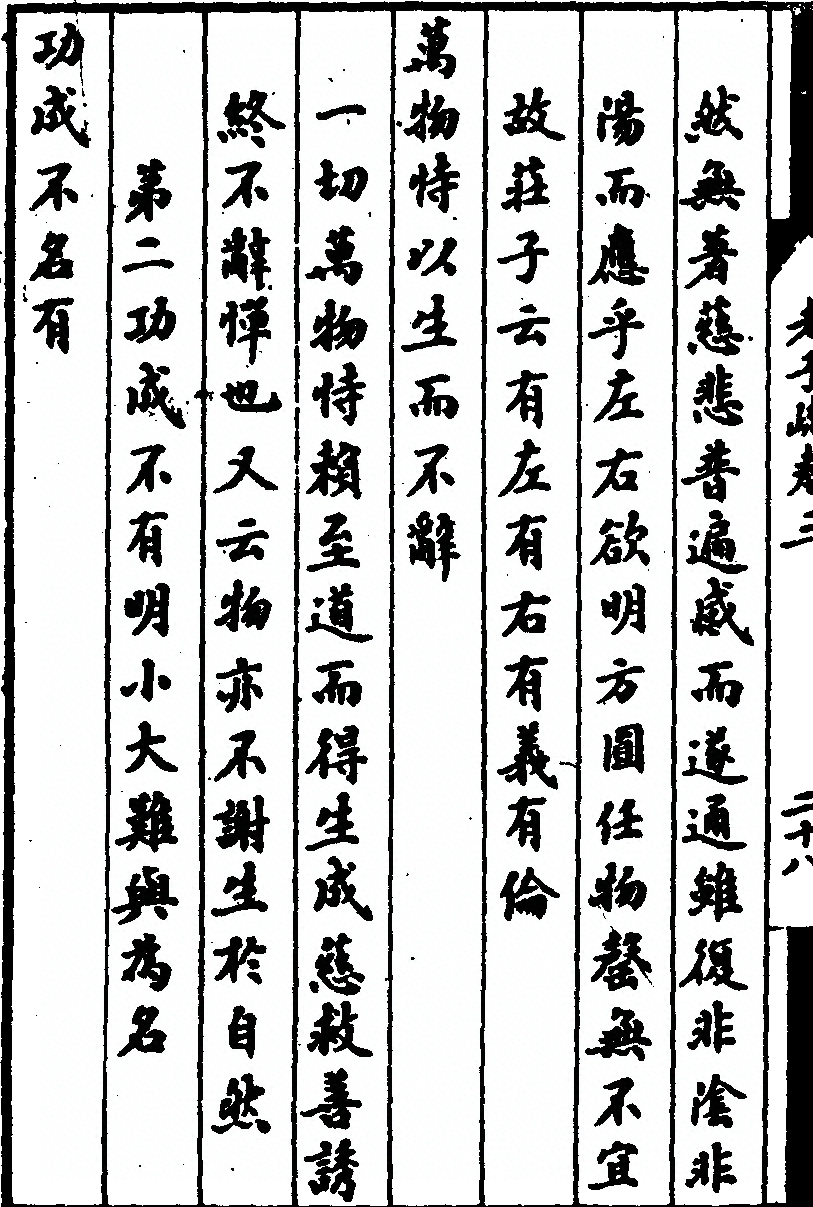 老子疏卷三 二十八
然無著慈悲普遍感而遂通雖復非陰非
陽而應乎左右欲明方圓任物罄無不宜
故莊子云有左有右有義有倫
萬物恃以生而不辭
一切萬物恃賴至道而得生成慈救善誘
終不辭憚也又云物亦不謝生於自然
第二功成不有明小大難與為名
功成不名有